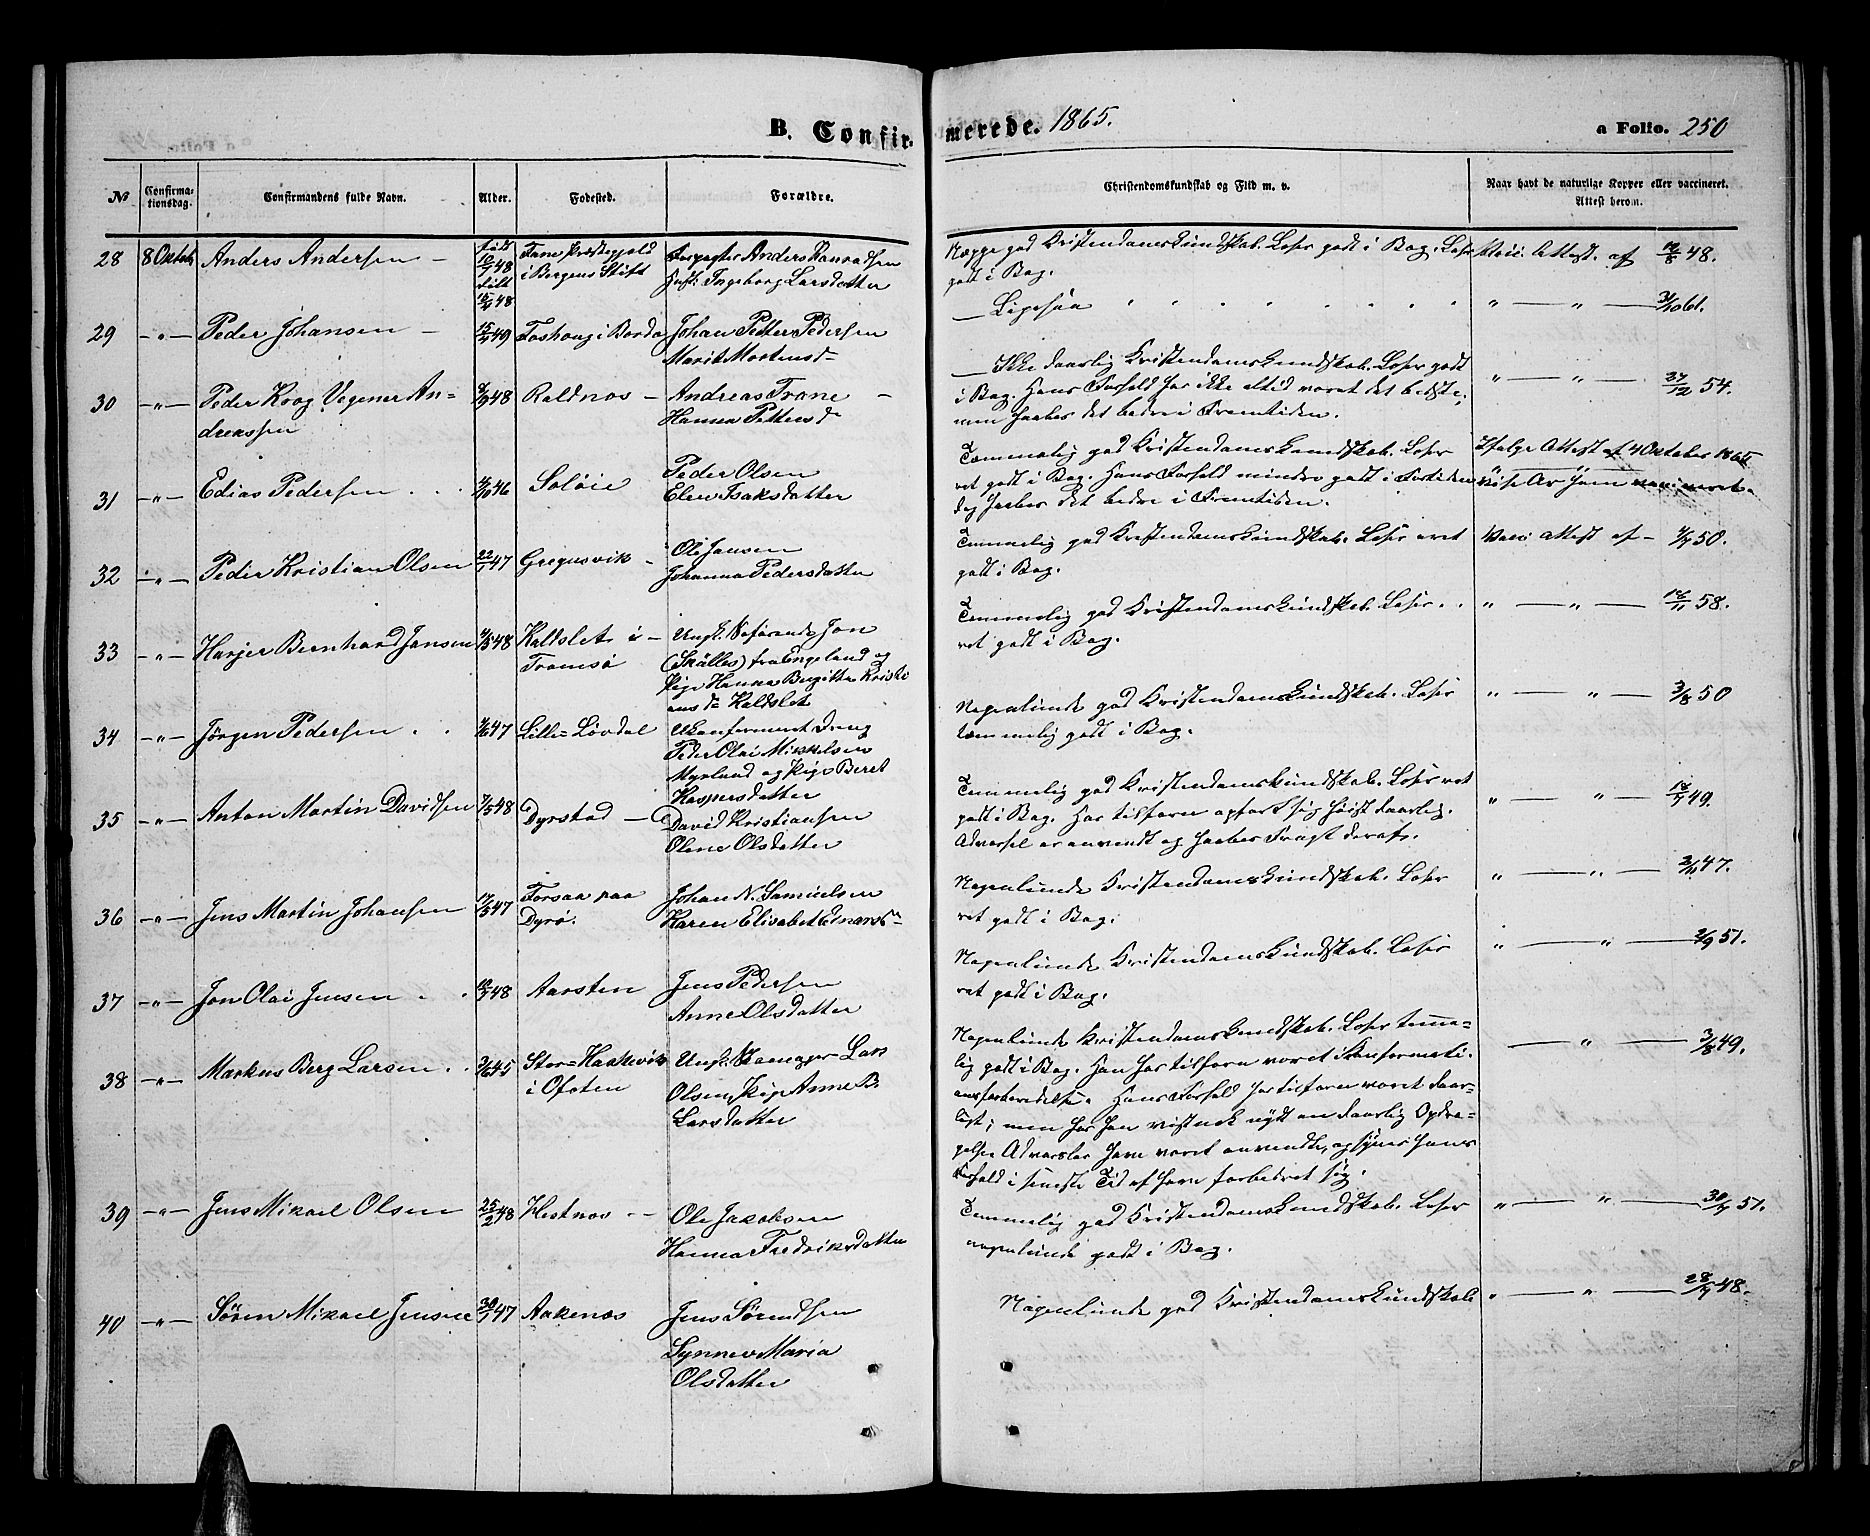 B. Confirmerede. 1865.
a Folio. 250
No
Confirmationsdag.
Confirmandens fulde Navn.
Alder.
Fødested.
Forældre.
Christendomskundskab og Flid m. v.
Naar havt de naturlige Kopper eller vaccineret. Attest derom.
28 8 Oktob Anders Andersen - født 10/7 48 døbt 15/9 48
Fane Præstegjeld
i Bergens Stift
Anders
Ingeborg Larsdatter
Neppe god Kristendomskundskab. Læser godt i Bog. Læser Vacci. Attest. af 12/8 48.
godt i Bog.
29 -"- Peder Johansen - 15/9 49
Johan Petter Pedersen
Marit Mortensd-
— Ligesaa " " " " " " " — " — 31/10 61.
30 -"- Peder Krog Vegener An=
dreassen
48 Roldnes - Andreas Trane -
Hanna Pettersd
— Ikke daarlig Kristendomskundskab. Læser godt
i Bog. Hans Forhold har ikke altid været det bedste;
men haabes det bedre i Fremtiden.
" — " — 27/12 54.
31 -"- Edias Pedersen . . . 46 Soløie
Peder Olsen
Elen Isaksdatter
Temmelig god Kristendomskundskab. Læser
ret godt i Bog. Hans Forhold mindre godt i Fortiden
dog haabes det bedre i Fremtiden.
Ifølge Attest af 4 Oktober 1865
32 -"- Peder Kristian Olsen 22/1 47 Gregusvik -
Ole Jensen
Johanna Pedersdatter
Temmelig god Kristendomskundskab. Læser
godt i Bog.
Vacci Attest af - 50.
33 -"- Harjer Bernhard Jansen 48 Kaldslet i -
Tromsø
Ungk. Søfarende Jon
(Skålles) fra Engeland og
Pige Hanna Bergitta Kristi
ansd. Kaldslet
Temmelig god Kristendomskundskab. Læser . .
ret godt i Bog.
" — " — 58.
34 -"- Jørgen Pedersen . . 47 Lille=Løvdal
Ukonfirmeret Dreng
Peder Olai Mikkelsen
Myrland og Pige Beret
Kaspersdatter
Nogenlunde god Kristendomskundskab. Læser
temmelig godt i Bog.
" — " — 3/8 50
35 -"- Anton Martin Davidsen 7/5 48 Dyrstad -
David Kristiansen
Olene Olsdatter
Temmelig god Kristendomskundskab. Læser ret
godt i Bog. Har tilforn opført sig høist daarlig.
Advarsel er anvendt og haabes Frugt deraf.
" — " — 49.
36 -"- Jens Martin Johansen 17/5 47
Forsaa paa
Dyrø.
Johan N. Samuelsen
Karen Elisabet
Nogenlunde Kristendomskundskab. Læser
ret godt i Bog.
" — " — 47.
37 -"- Jon Olai Jensen . . 48 Aarsten
Jens Pedersen
Anne Olsdatter
Nogenlunde Kristendomskundskab. Læser
ret godt i Bog.
" — " — 51.
38 -"- Markus Berg Larsen . . 45
i Ofoten
Lars
Olsen, Pige Anne B.
Larsdatter
Nogenlunde Kristendomskundskab. Læser temme=
lig godt i Bog. Han har tilforn været i Konfirmati=
onsforberedelse. Hans Forhold har tilforn været daar=
ligt; men har han vistnok nydt en daarlig Opdra=
gelse Advarsler have været anvendte, og synes hans
Forhold i seneste Tid at have forbedret sig.
— " — 3/8 49.
39 -"- Jens Mikael Olsen 25/2 48 Hestnes --
Ole Jakobsen
Hanna Fredriksdatter
Temmelig god Kristendomskundskab. Læser
nogenlunde godt i Bog.
" — " — 51.
40 -"- Søren Mikael Jensen 47 Aakenes
Jens Sørendsen
Synnev Maria
Olsdatter
Nogenlunde god Kristendomskundskab " — " — 48.